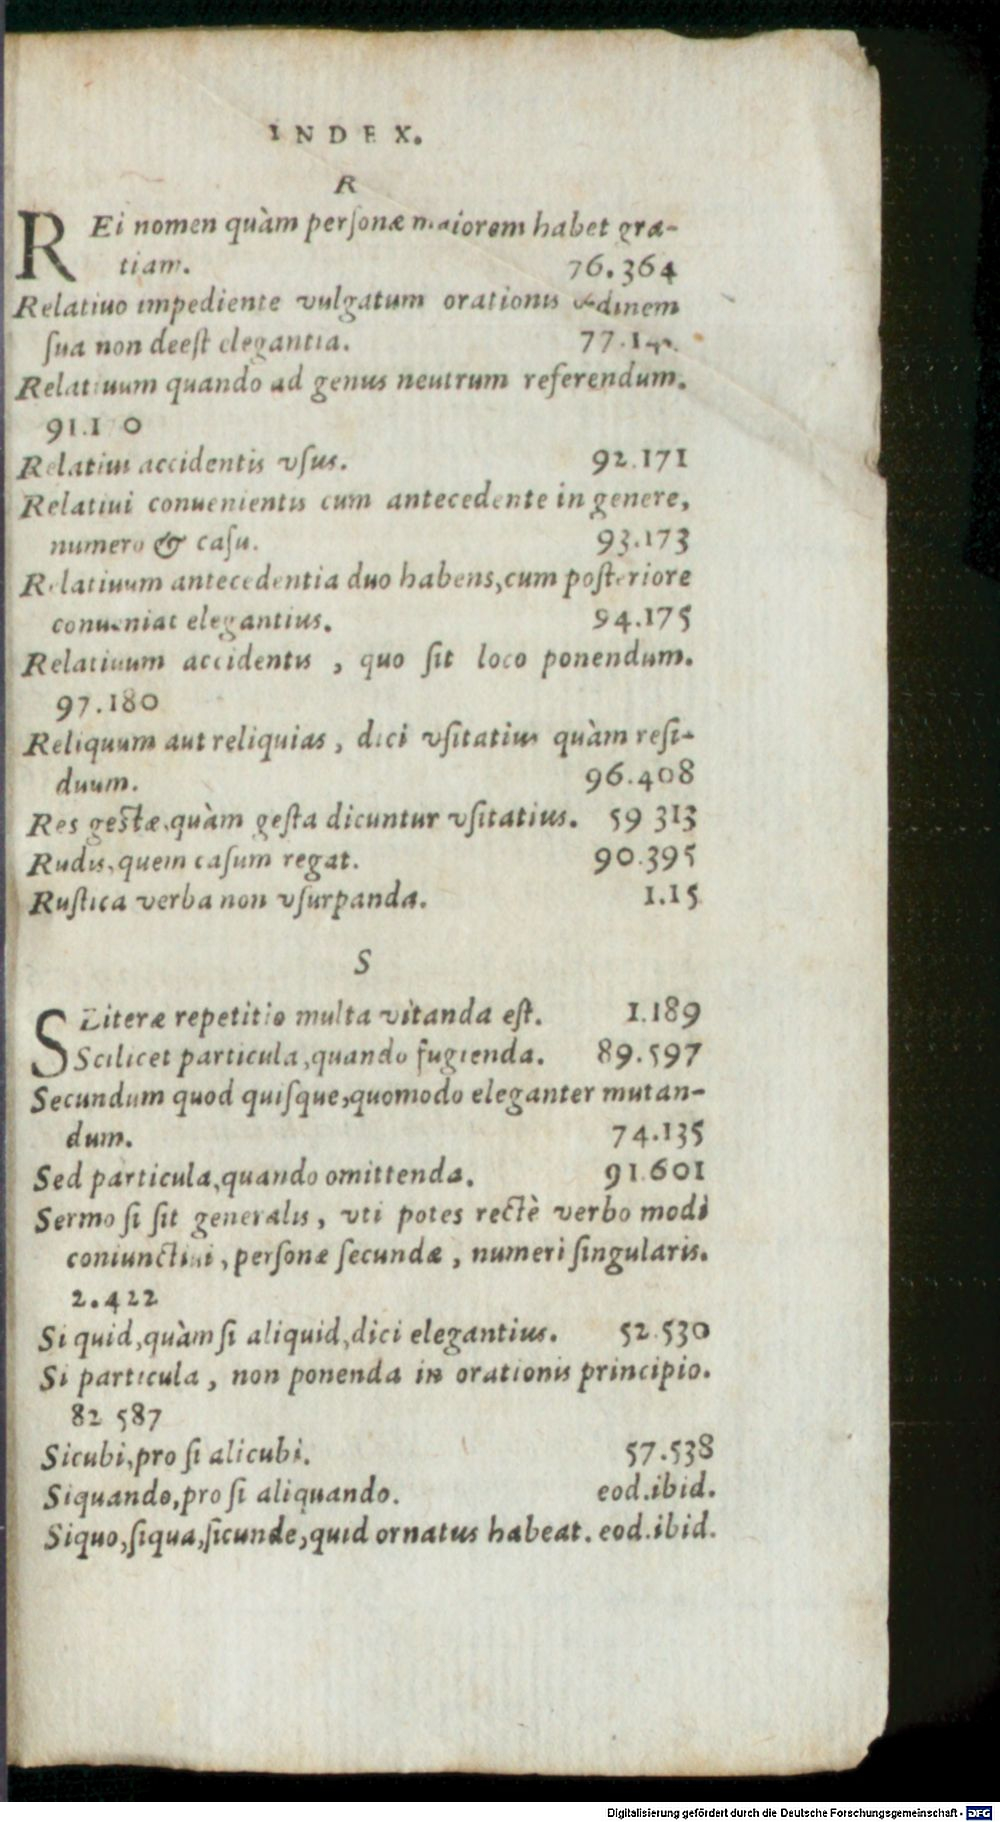 INDEX.
R
REi nomen quàm personæ maiorem habet gra-
tiam. 76.364
Relatiuo impediente vulgatum orationis
sua non deest elegantia.
Relatiuum quando ad genus neutrum referendum.
Relatiui accidentis vsus. 92.171
Relatiui conuenientis cum antecedente in genere,
numero & casu. 93.173
Relatiuum antecedentia duo habens, cum posteriore
conueniat elegantius. 94.175
Relatiuum accidentis, quo sit loco ponendum.
97.180
Reliquum aut reliquias, dici vsitatius quàm resi-
duum. 96.408
Res gestæ, quàm gesta dicuntur vsitatius. 59 313
Rudis, quem casum regat. 90.395
Rustica verba non vsurpanda. 1.15
S
S Literæ repetitio multa vitanda est. 1.189
Scilicet particula, quando fugienda. 89.597
Secundum quod quisque, quomodo eleganter mutan-
dum. 74.135
Sed particula, quando omittenda. 91.601
Sermo si sit generalis, vti potes rectè verbo modi
coniunctiui, personæ secundæ, numeri singularis.
2.422
Si quid, quàm si aliquid, dici elegantius. 52.530
Si particula, non ponenda in orationis principio.
82 587
Sicubi, pro si alicubi. 57.538
Siquando, pro si aliquando. eod.ibid.
Siquo, siqua, sicunde, quid ornatus habeat. eod.ibid.
Digitalisierung gefördert durch die Deutsche Forschungsgemeinschaft - DFG